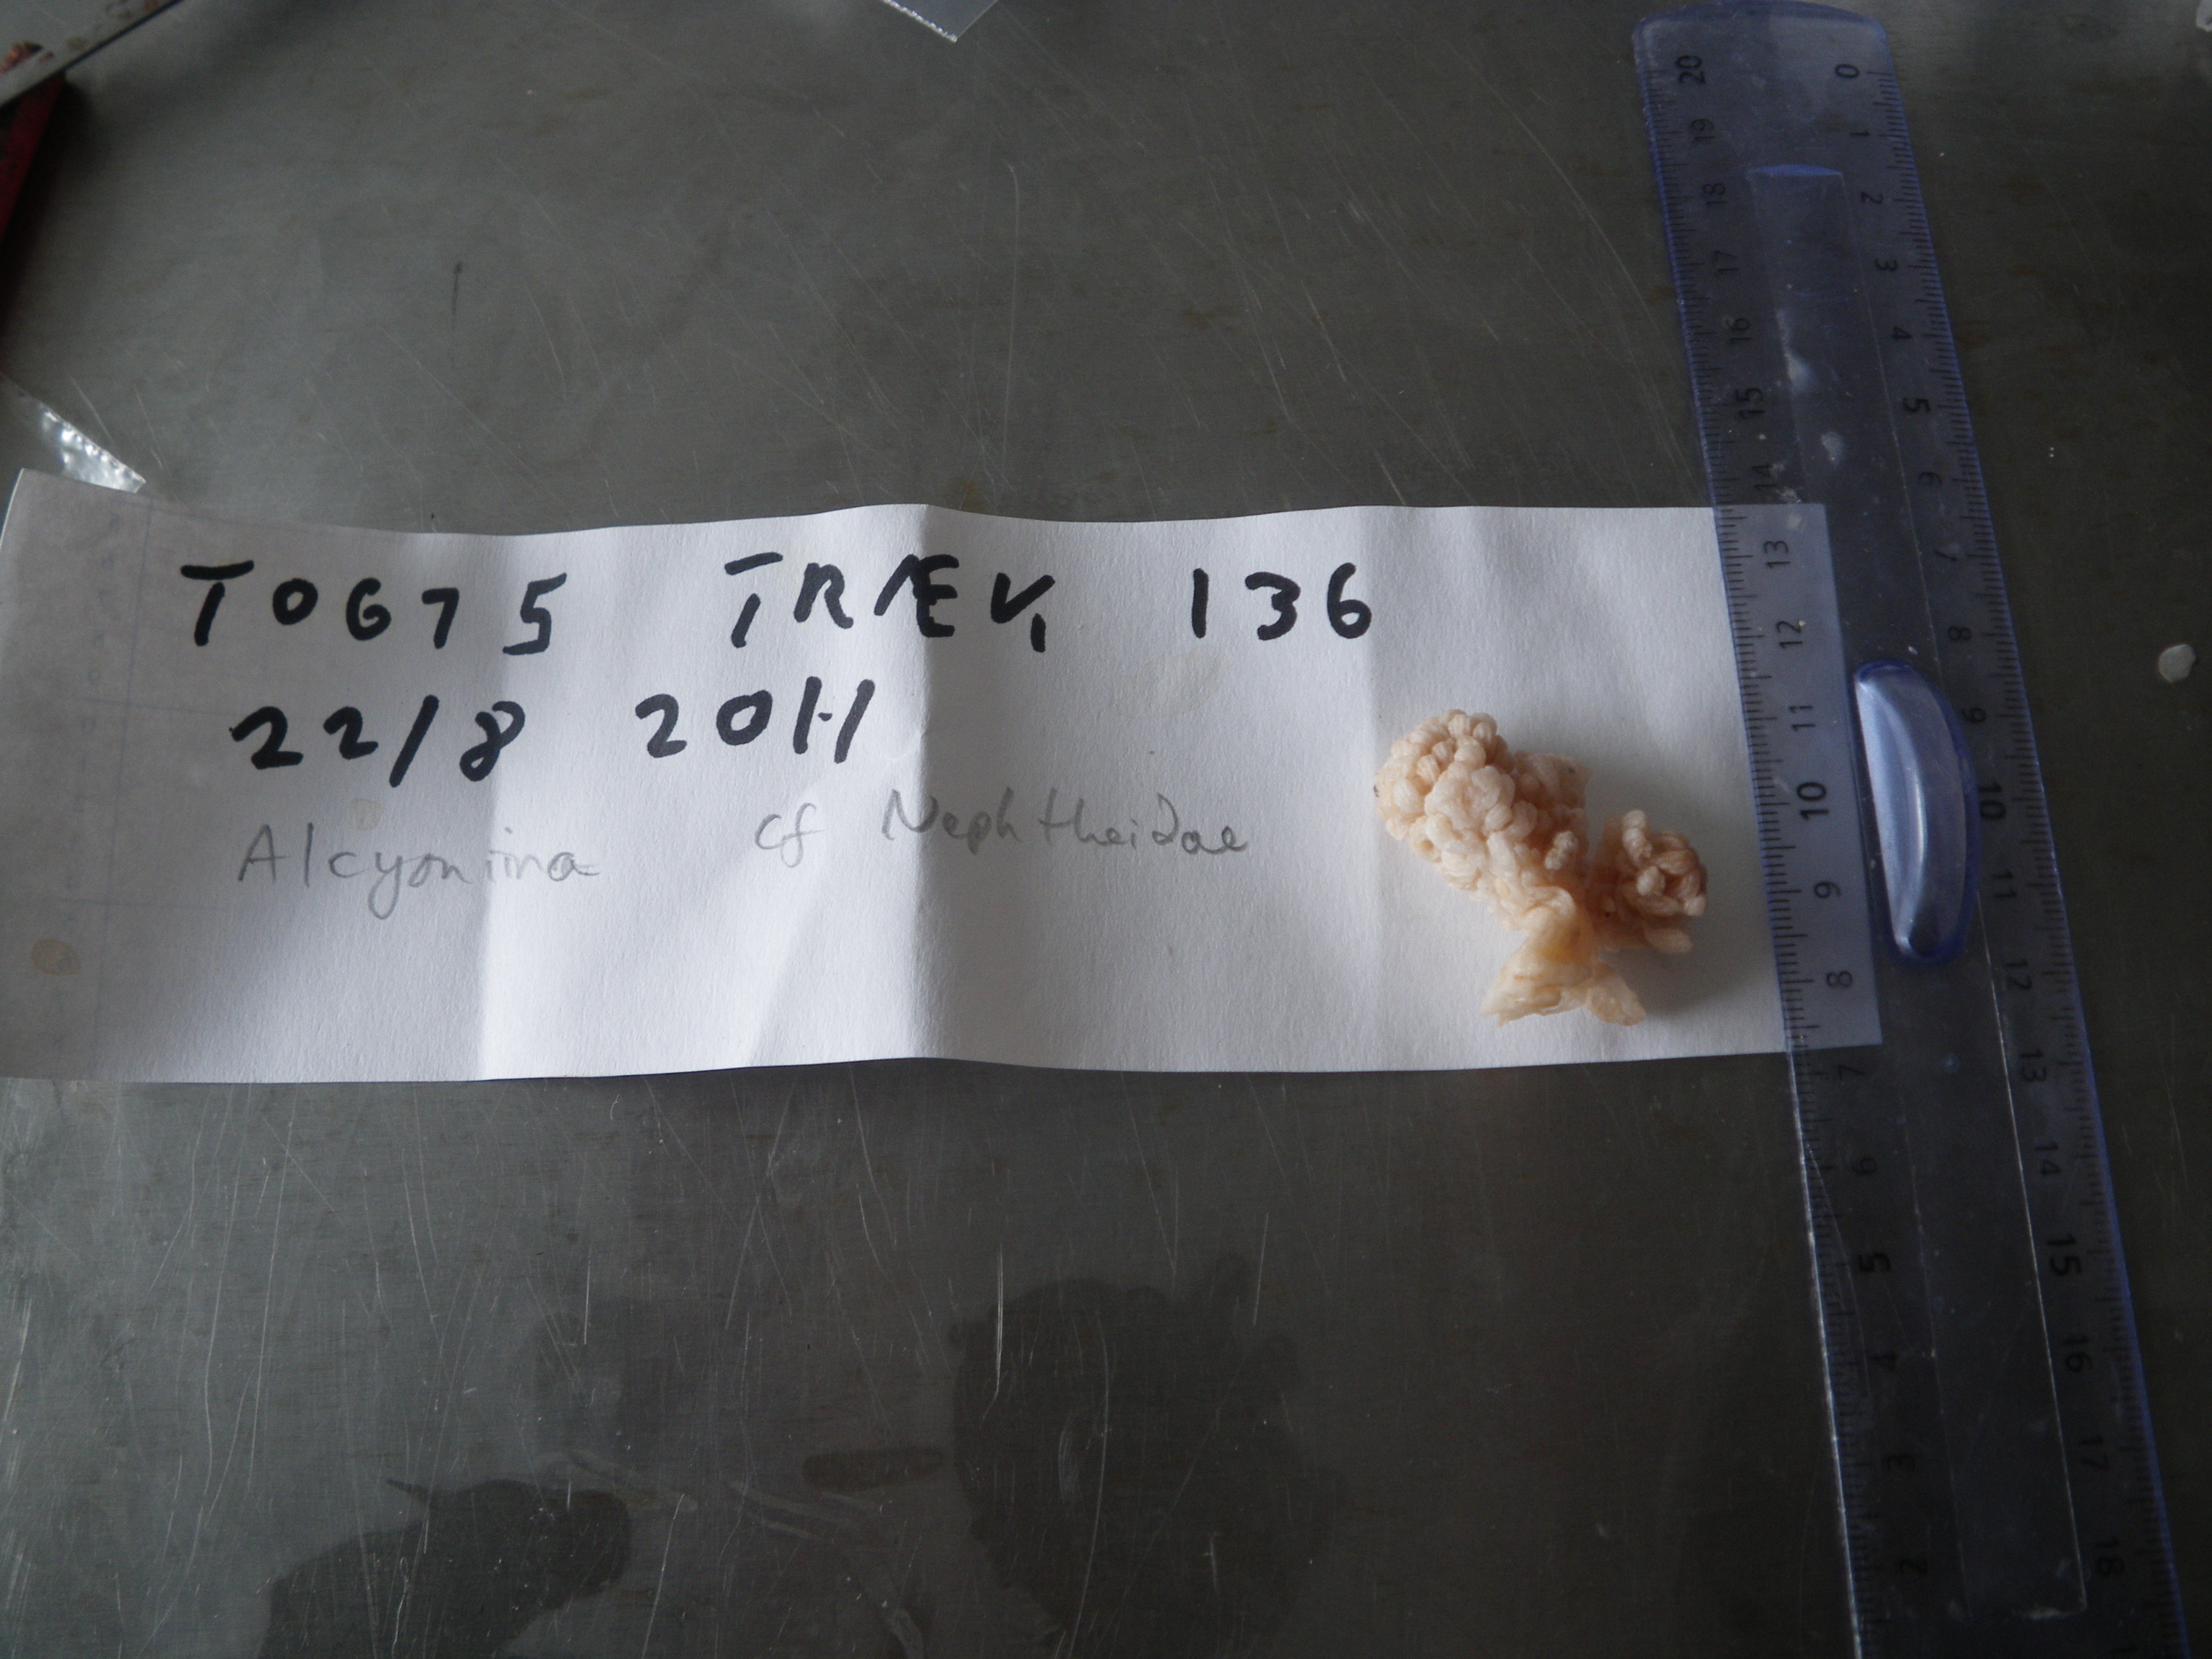 TOGT 5 TRÆK 136
22/8 2011
Alcyoniina cf Nephtheidae
20 19 18 17 16 15 14 13 12 11 10 9 8 7 6 5 4 3 2
0 1 2 3 4 5 6 7 8 9 10 11 12 13 14 15 16 17 18